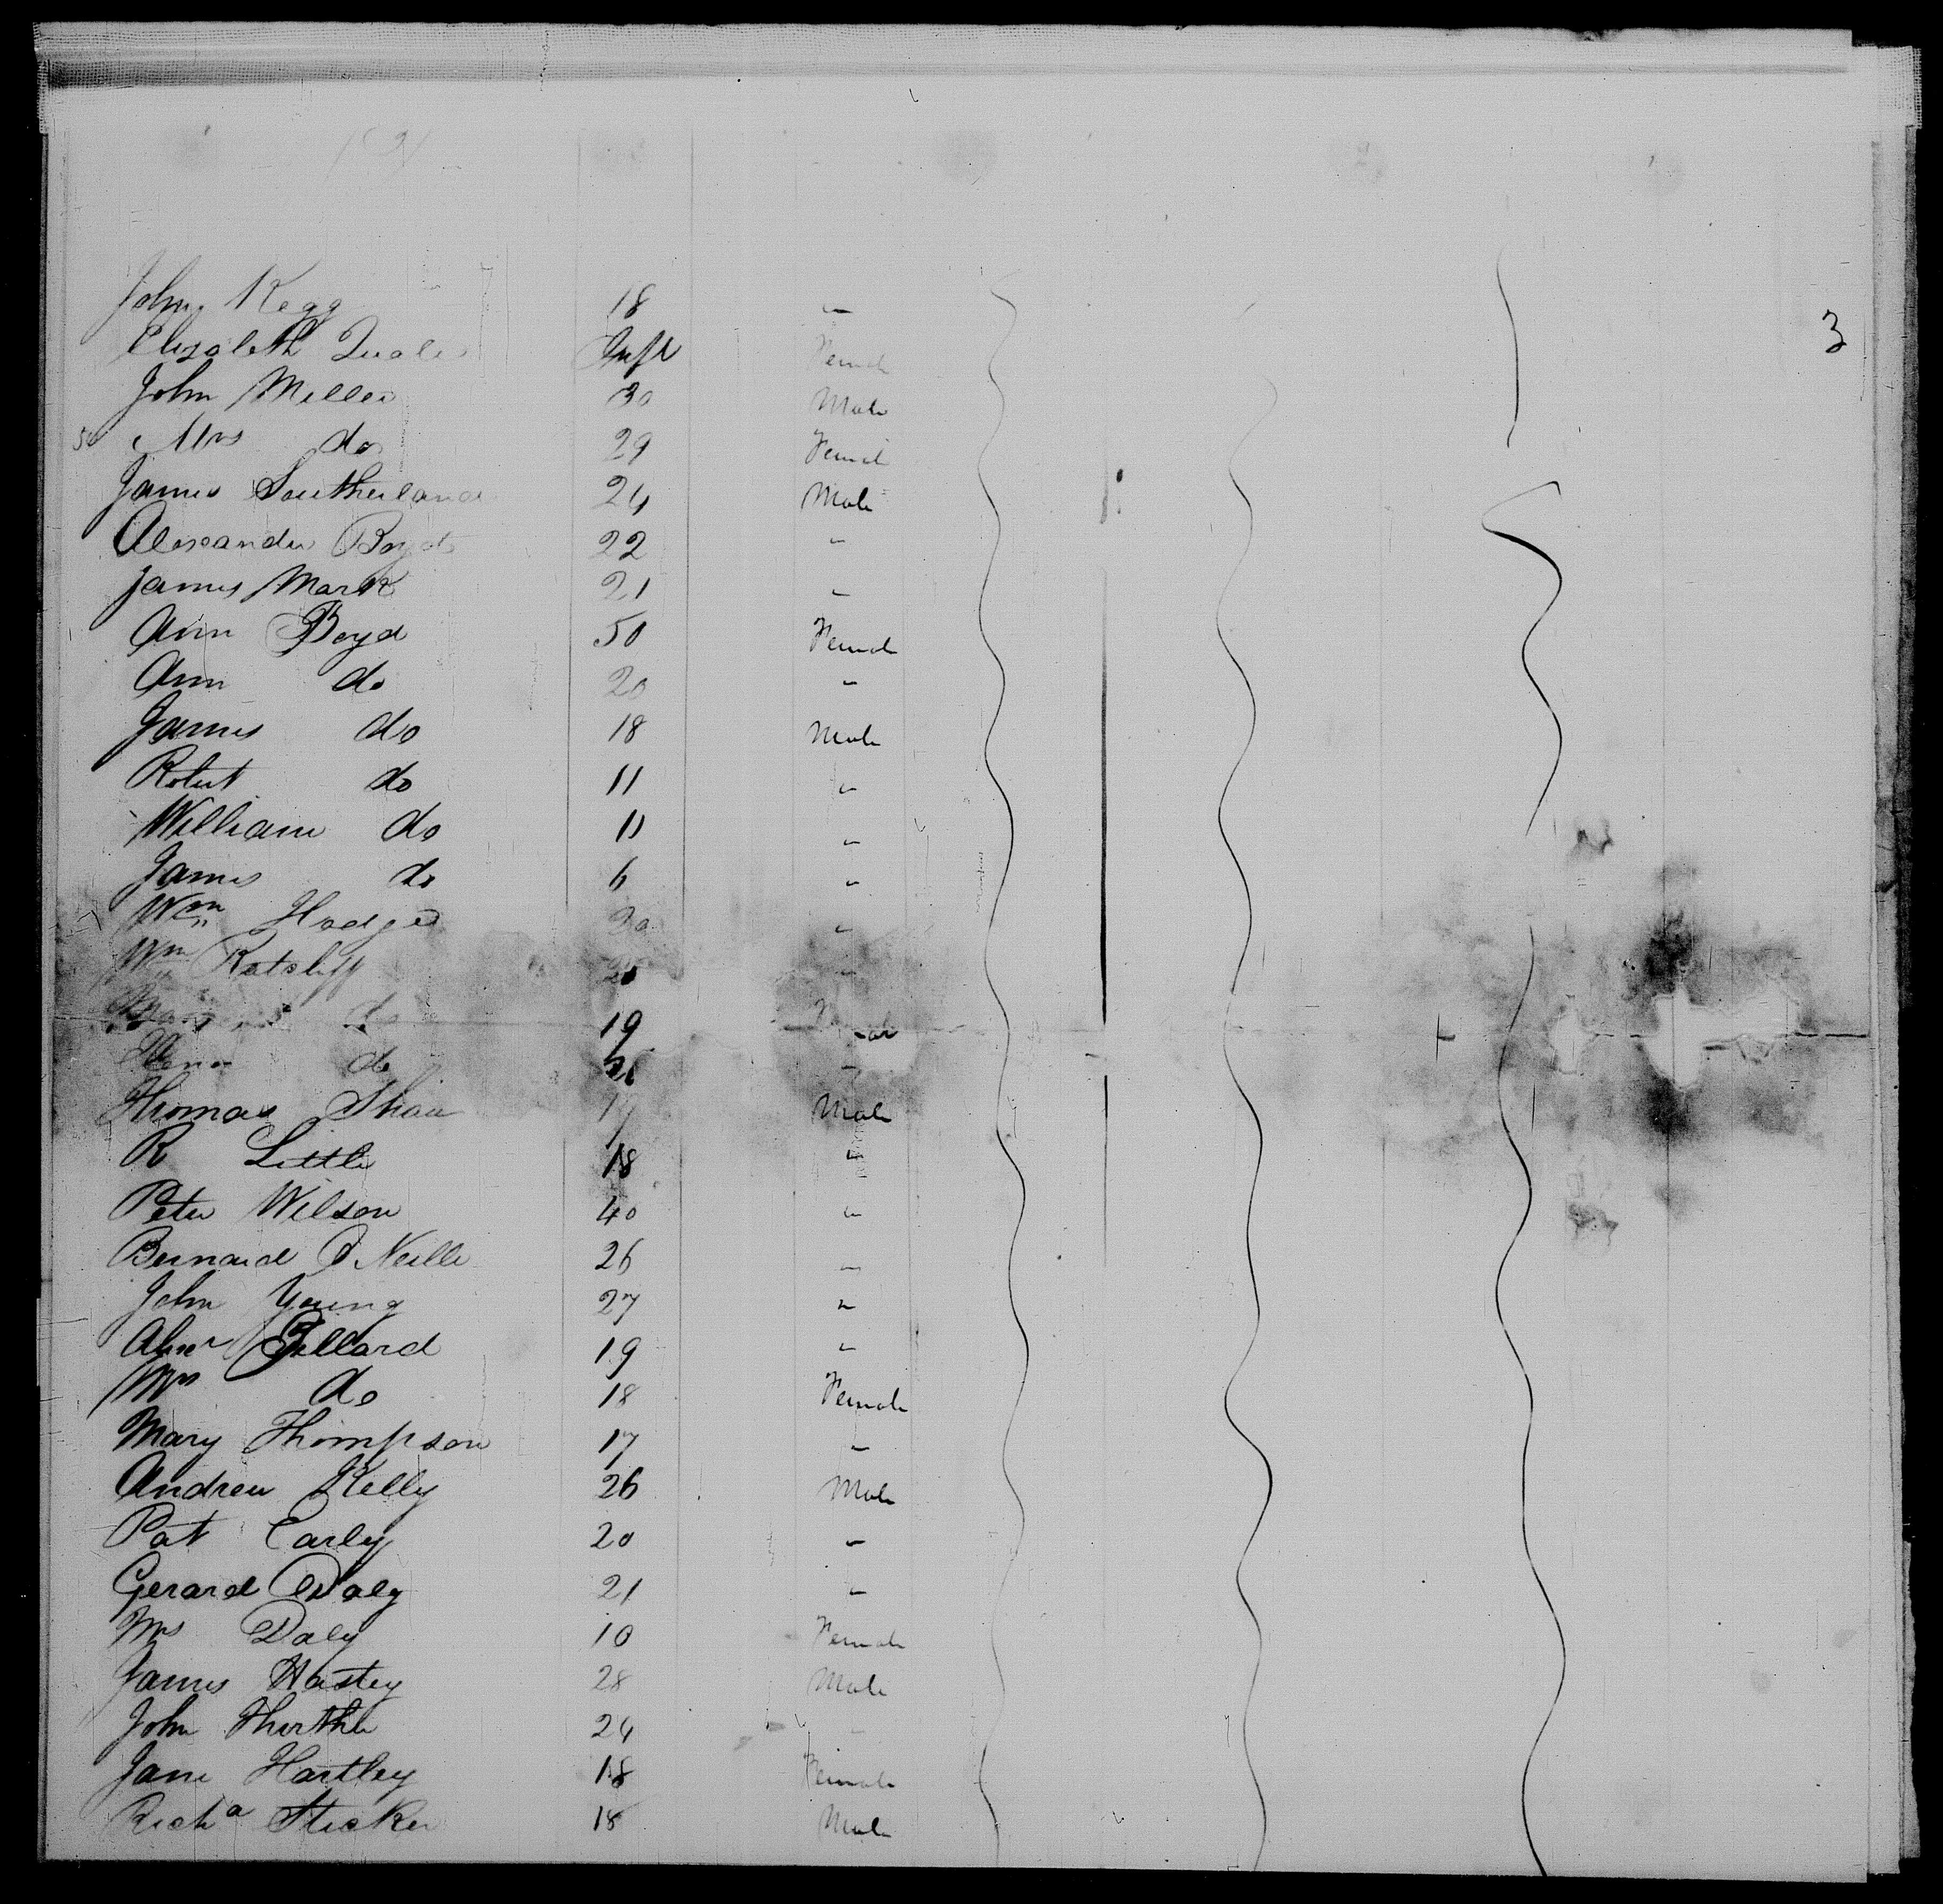 3
John Kegg 18 "
Elizabeth Inft Female
John Miller 30 Male
50 Mrs do 29 Female
James Southerland 24 Male
Alexander Boyd 22 "
James Mark 21 "
Ann Boyd 50 Female
Ann do 20 "
James do 18 Male
Robert do 11 "
William do 11 "
James do 6 "
Wm Hodges 30 "
Wm Ratcliff "
do 19
do "
Thomas Shaw 19 Male
R Little 18 "
Peter Wilson 40 "
Bernard O'Neille 26 "
John Young 27 "
Alexr 19 "
Mrs do 18 Female
Mary Thompson 17 "
Andrew Kelly 26 Male
Pat Carley 20 "
Gerard Daly 21 "
Mrs Daly 10 Female
James Hastey 28 Male
John 24 "
Jane Hartley 18 Female
Richd Sticker 18 Male